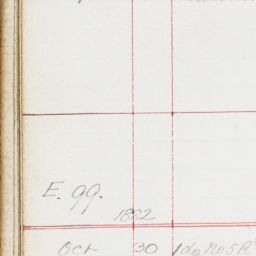 E. 99.
1882
Oct 30 1 do No 5 R